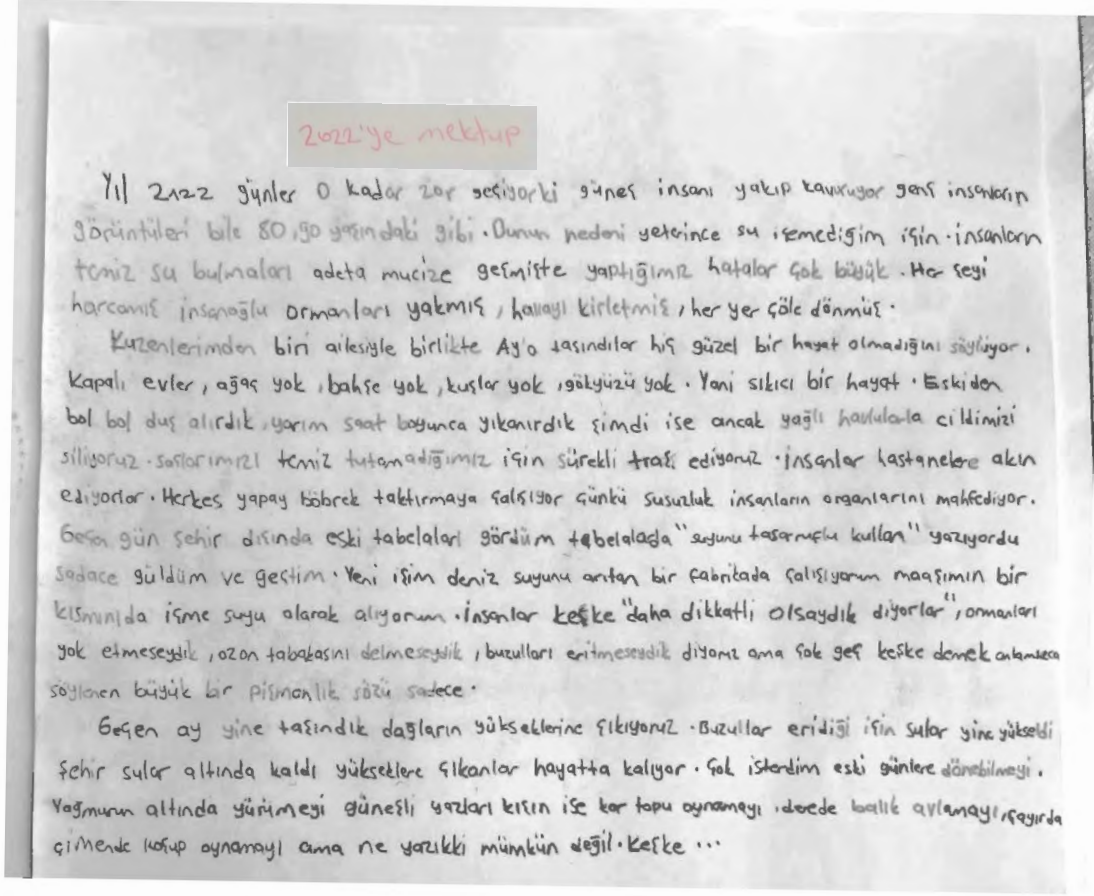 2022'ye mektup
Yıl 2122 günler o kadar zor geçiyorki güneş insanı yakıp kavuruyor genç insanların
görüntüleri bile 80,90 yaşındaki gibi. Bunun nedeni yeterince su içemediğim için. insanların
temiz su bulmaları adeta mucize geçmişte yaptığımız hatalar çok büyük. Her şeyi
harcamış insanoğlu ormanları yakmış, havayı kirletmiş, her yer çöle dönmüş.
Kuzenlerimden biri ailesiyle birlikte Ay'a taşındılar hiç güzel bir hayat olmadığını söylüyor.
Kapalı evler, ağaç yok, bahçe yok, kuşlar yok, gökyüzü yok. Yani sıkıcı bir hayat. Eskiden
bol bol duş alırdık, yarım saat boyunca yıkanırdık şimdi ise ancak yağlı havlularla cildimizi
siliyoruz. saçlarımızı temiz tutamadığımız için sürekli traş ediyoruz. insanlar hastanelere akın
ediyorlar. Herkes yapay böbrek taktırmaya çalışıyor çünkü susuzluk insanların organlarını mahfediyor.
Geçen gün şehir dışında eski tabelaları gördüm tabelalada "suyunu tasarruflu kullan" yazıyordu
sadace güldüm ve geçtim. Yeni işim deniz suyunu arıtan bir fabrikada çalışıyorum maaşımın bir
kısmınıda içme suyu olarak alıyorum. insanlar keşke "daha dikkatli olsaydık diyorlar", ormanları
yok etmeseydik, ozon tabakasını delmeseydik, buzulları eritmeseydik diyoruz ama çok geç keşke demek
söylenen büyük bir pişmanlık sözü sadece.
Geçen ay yine taşındık dağların yükseklerine çıkıyoruz. Buzullar eridiği için sular yine yükseldi
şehir sular altında kaldı yükseklere çıkanlar hayatta kalıyor. Çok isterdim eski günlere dönebilmeyi.
Yağmurun altında yürümeyi güneşli yazları kışın ise kar topu oynamayı, derede balık avlamayı, çayırda
çimende koşup oynamayı ama ne yazıkki mümkün değil. Keşke ...